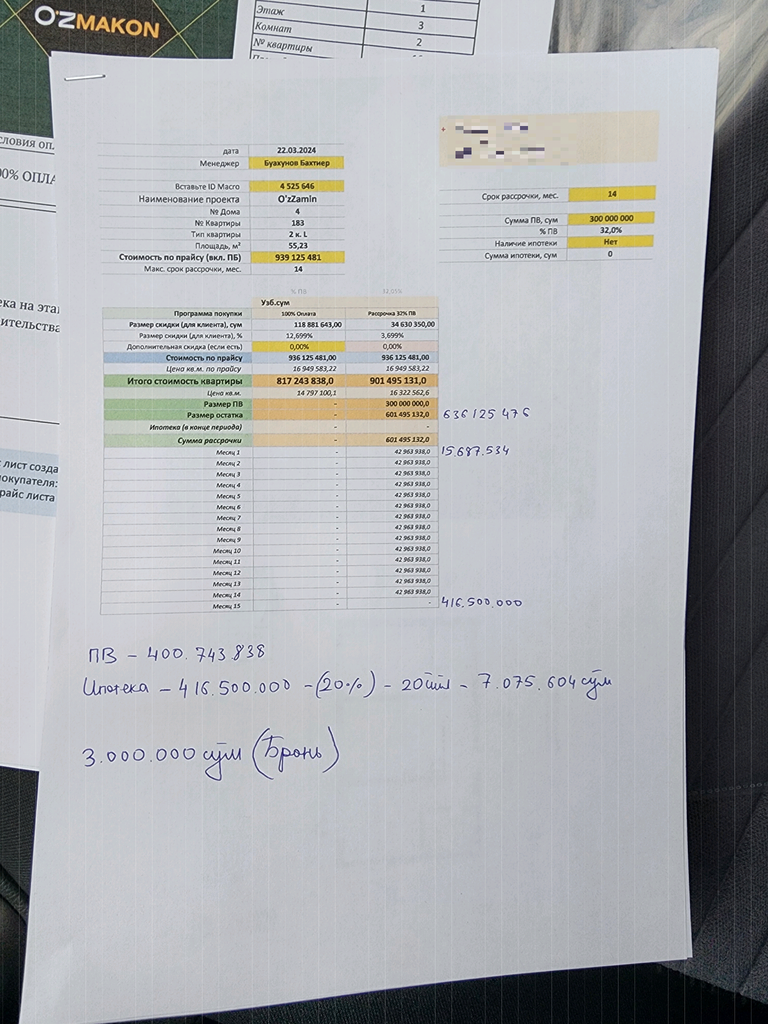 O'ZMAKON
Этаж 1
Комнат 3
№ квартиры 2
дата 22.03.2024
Менеджер Буахунов Бахтиер
Вставьте ID Macro 4 525 646
Наименование проекта O'zZamin
№ Дома 4
№ Квартиры 183
Тип квартиры 2 к. L
Площадь, м² 55,23
Стоимость по прайсу (вкл. ПБ) 939 125 481
Макс. срок рассрочки, мес. 14
Срок рассрочки, мес. 14
Сумма ПВ, сум 300 000 000
% ПВ 32,0%
Наличие ипотеки Нет
Сумма ипотеки, сум 0
% ПВ 32,05%
Узб.сум
Программа покупки 100% Оплата Рассрочка 32% ПВ
Размер скидки (для клиента), сум 118 881 643,00 34 630 350,00
Размер скидки (для клиента), % 12,699% 3,699%
Дополнительная скидка (если есть) 0,00% 0,00%
Стоимость по прайсу 936 125 481,00 936 125 481,00
Цена кв.м. по прайсу 16 949 583,22 16 949 583,22
Итого стоимость квартиры 817 243 838,0 901 495 131,0
Цена кв.м. 14 797 100,1 16 322 562,6
Размер ПВ - 300 000 000,0
Размер остатка - 601 495 132,0 636 125 476
Ипотека (в конце периода) - -
Сумма рассрочки - 601 495 132,0
Месяц 1 - 42 963 938,0 15.687.534
Месяц 2 - 42 963 938,0
Месяц 3 - 42 963 938,0
Месяц 4 - 42 963 938,0
Месяц 5 - 42 963 938,0
Месяц 6 - 42 963 938,0
Месяц 7 - 42 963 938,0
Месяц 8 - 42 963 938,0
Месяц 9 - 42 963 938,0
Месяц 10 - 42 963 938,0
Месяц 11 - 42 963 938,0
Месяц 12 - 42 963 938,0
Месяц 13 - 42 963 938,0
Месяц 14 - 42 963 938,0
Месяц 15 - - 416.500.000
ПВ – 400.743.838
Ипотека – 416.500.000 – (20%) – 20йил – 7.075.604 сўм
3.000.000 сўм (Бронь)